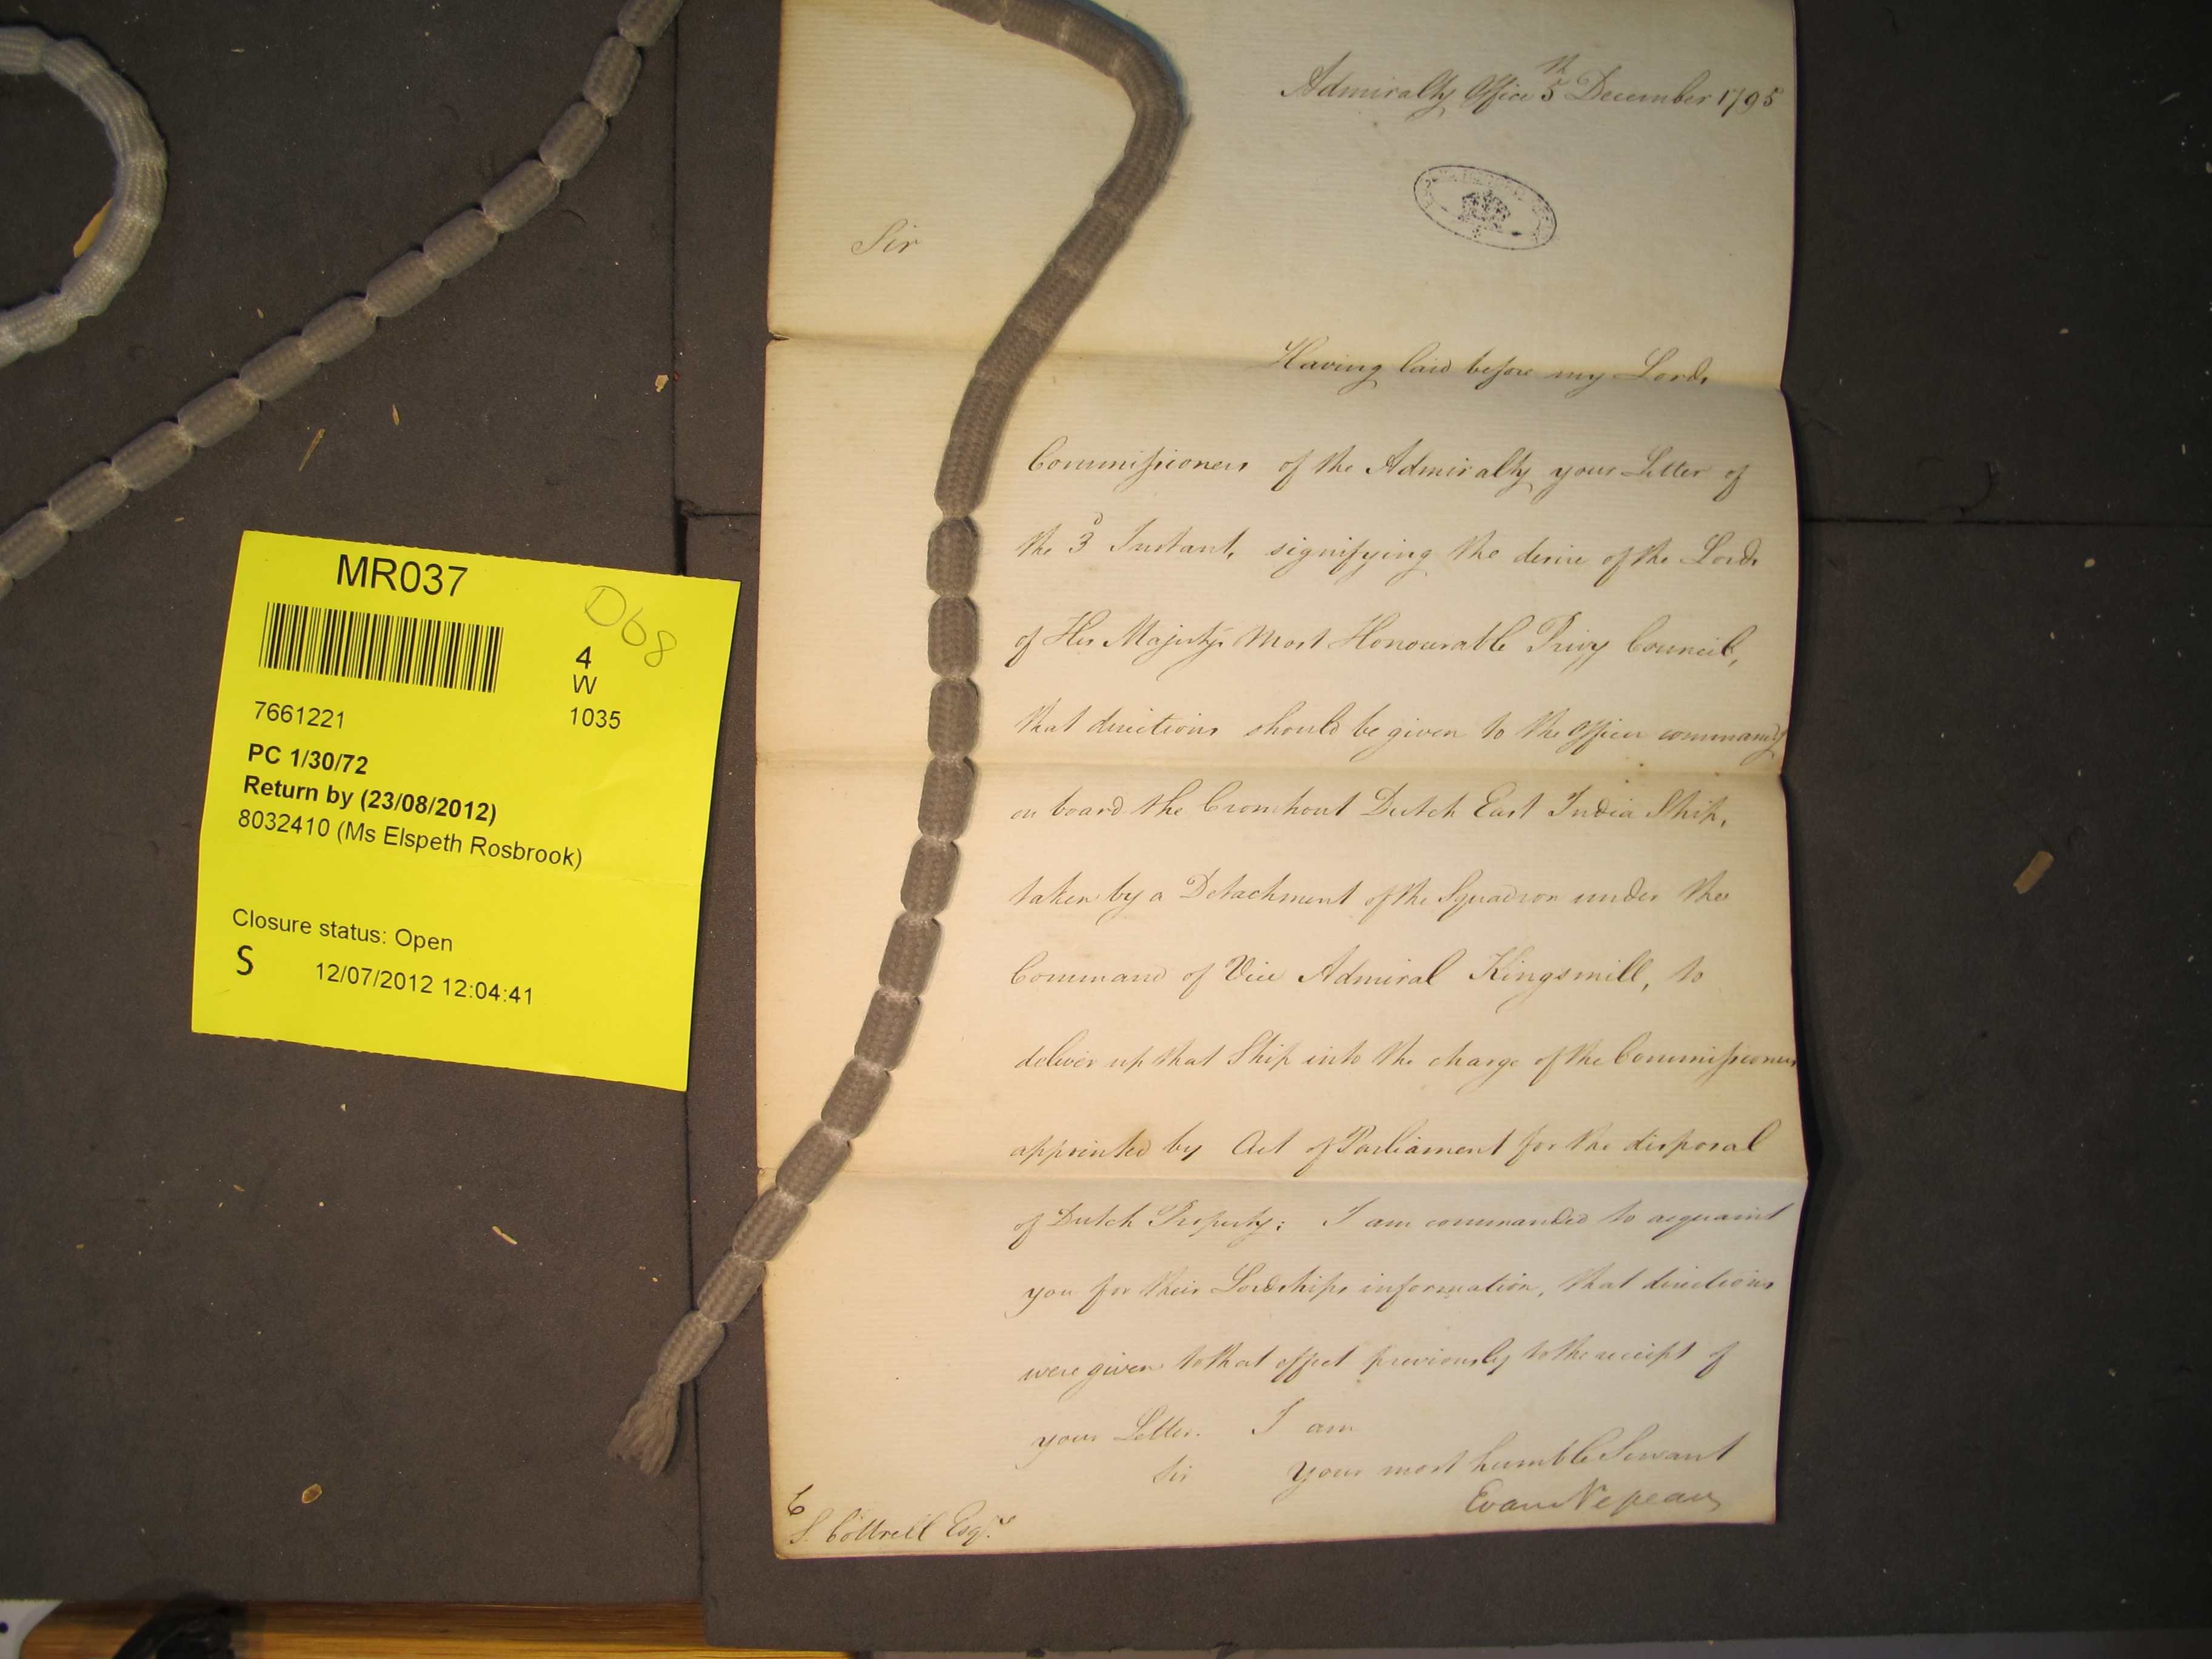 MR037
D68
4
W
1035
7661221
PC 1/30/72
Return by (23/08/2012)
8032410 (Ms Elspeth Rosbrook)
Closure status: Open
S 12/07/2012 12:04:41
Admiralty Office 5th December 1795
Sir
Having laid before my Lords
Commissioners of the Admiralty your Letter of
the 3d Instant, signifying the desire of the Lords
of His Majesty's Most Honourable Privy Council,
that directions should be given to the Officer commandg
on board the Cromhout Dutch East India Ship,
taken by a Detachment of the Squadron under the
Command of Vice Admiral Kingsmill, to
deliver up that Ship into the charge of the Commissioners
appointed by Act of Parliament for the disposal
of Dutch Property; I am commanded to acquaint
you for their Lordships information, that directions
were given to that effect previously to the receipt of
your Letter. I am
Sir Your most humble Servant
Evan Nepean
S. Cottrell Esqre